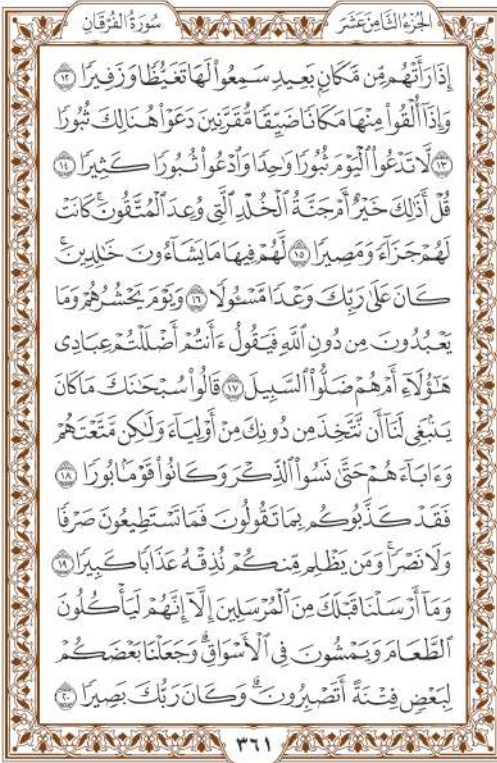 الجُزْءُ الثَّامِنَ عَشَرَ
سُورَةُ الفُرْقَانِ
إِذَا رَأَتْهُم مِّن مَّكَانِۭ بَعِيدٖ سَمِعُواْ لَهَا تَغَيُّظٗا وَزَفِيرٗا ١٢
وَإِذَآ أُلۡقُواْ مِنۡهَا مَكَانٗا ضَيِّقٗا مُّقَرَّنِينَ دَعَوۡاْ هُنَالِكَ ثُبُورٗا
١٣ لَّا تَدۡعُواْ ٱلۡيَوۡمَ ثُبُورٗا وَٰحِدٗا وَٱدۡعُواْ ثُبُورٗا كَثِيرٗا ١٤
قُلۡ أَذَٰلِكَ خَيۡرٌ أَمۡ جَنَّةُ ٱلۡخُلۡدِ ٱلَّتِي وُعِدَ ٱلۡمُتَّقُونَۚ كَانَتۡ
لَهُمۡ جَزَآءٗ وَمَصِيرٗا ١٥ لَّهُمۡ فِيهَا مَا يَشَآءُونَ خَٰلِدِينَۚ
كَانَ عَلَىٰ رَبِّكَ وَعۡدٗا مَّسۡـُٔولٗا ١٦ وَيَوۡمَ يَحۡشُرُهُمۡ وَمَا
يَعۡبُدُونَ مِن دُونِ ٱللَّهِ فَيَقُولُ ءَأَنتُمۡ أَضۡلَلۡتُمۡ عِبَادِي
هَٰٓؤُلَآءِ أَمۡ هُمۡ ضَلُّواْ ٱلسَّبِيلَ ١٧ قَالُواْ سُبۡحَٰنَكَ مَا كَانَ
يَنۢبَغِي لَنَآ أَن نَّتَّخِذَ مِن دُونِكَ مِنۡ أَوۡلِيَآءَ وَلَٰكِن مَّتَّعۡتَهُمۡ
وَءَابَآءَهُمۡ حَتَّىٰ نَسُواْ ٱلذِّكۡرَ وَكَانُواْ قَوۡمَۢا بُورٗا ١٨
فَقَدۡ كَذَّبُوكُم بِمَا تَقُولُونَ فَمَا تَسۡتَطِيعُونَ صَرۡفٗا
وَلَا نَصۡرٗاۚ وَمَن يَظۡلِم مِّنكُمۡ نُذِقۡهُ عَذَابٗا كَبِيرٗا ١٩
وَمَآ أَرۡسَلۡنَا قَبۡلَكَ مِنَ ٱلۡمُرۡسَلِينَ إِلَّآ إِنَّهُمۡ لَيَأۡكُلُونَ
ٱلطَّعَامَ وَيَمۡشُونَ فِي ٱلۡأَسۡوَاقِۗ وَجَعَلۡنَا بَعۡضَكُمۡ
لِبَعۡضٖ فِتۡنَةً أَتَصۡبِرُونَۗ وَكَانَ رَبُّكَ بَصِيرٗا ٢٠
٣٦١